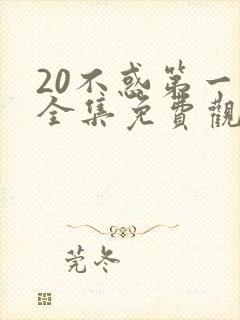 20不惑第一
全集免費觀
莞冬